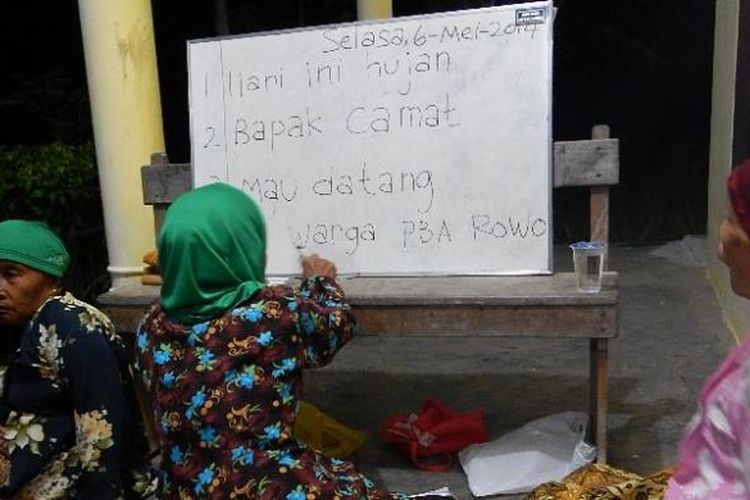 Selasa, 6-Mei-2014
1 Hari ini hujan
2 Bapak Camat
mau datang
warga PBA ROWO